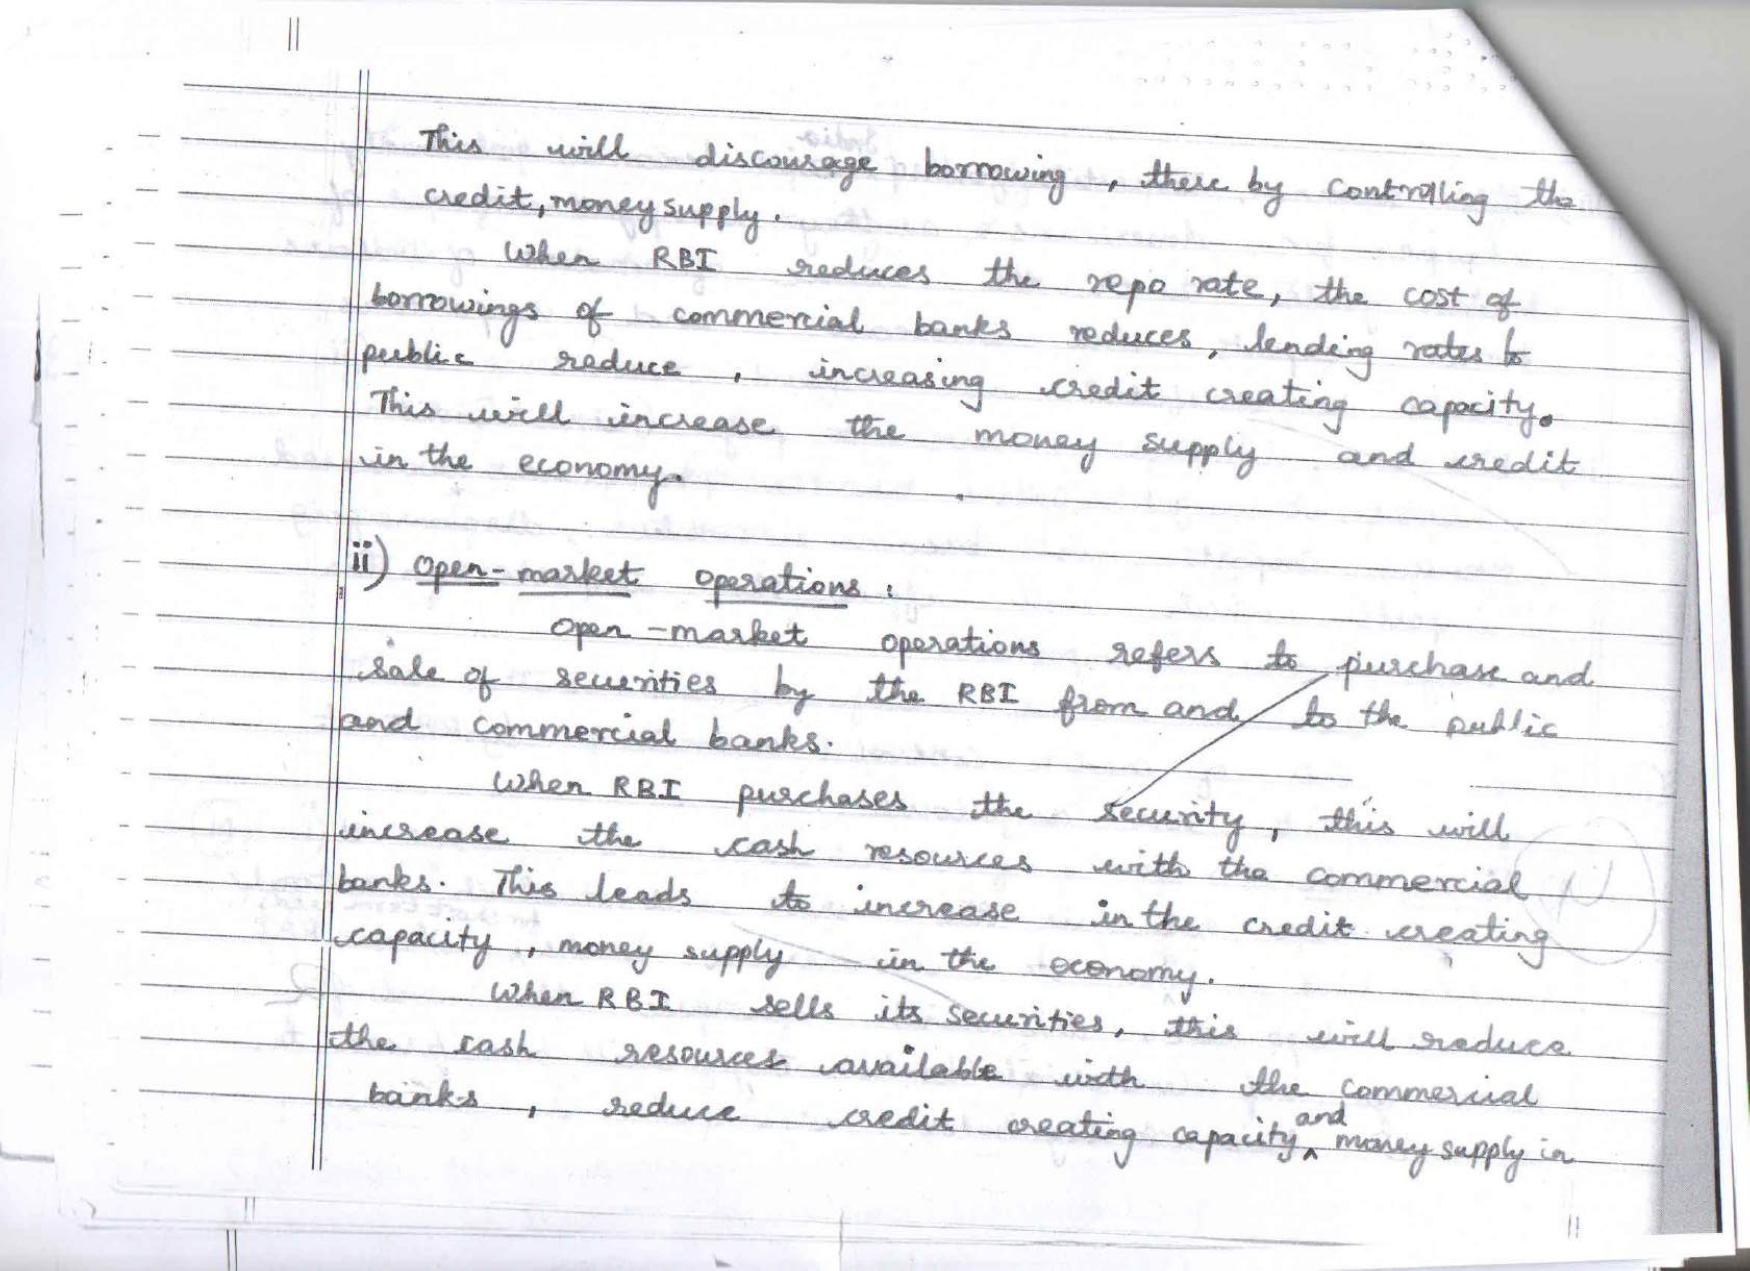 This will discourage borrowing, there by controlling the
credit, money supply.
When RBI reduces the repo rate, the cost of
borrowings of commercial banks reduces, lending rates to
public reduce, increasing credit creating capacity.
This will increase the money supply and credit
in the economy.
ii) Open-market operations:
Open-market operations refers to purchase and
sale of securities by the RBI from and to the public
and commercial banks.
When RBI purchases the security, this will
increase the cash resources with the commercial
banks. This leads to increase in the credit creating
capacity, money supply in the economy.
When RBI sells its securities, this will reduce
the cash resources available with the commercial
banks, reduce credit creating capacity and money supply in